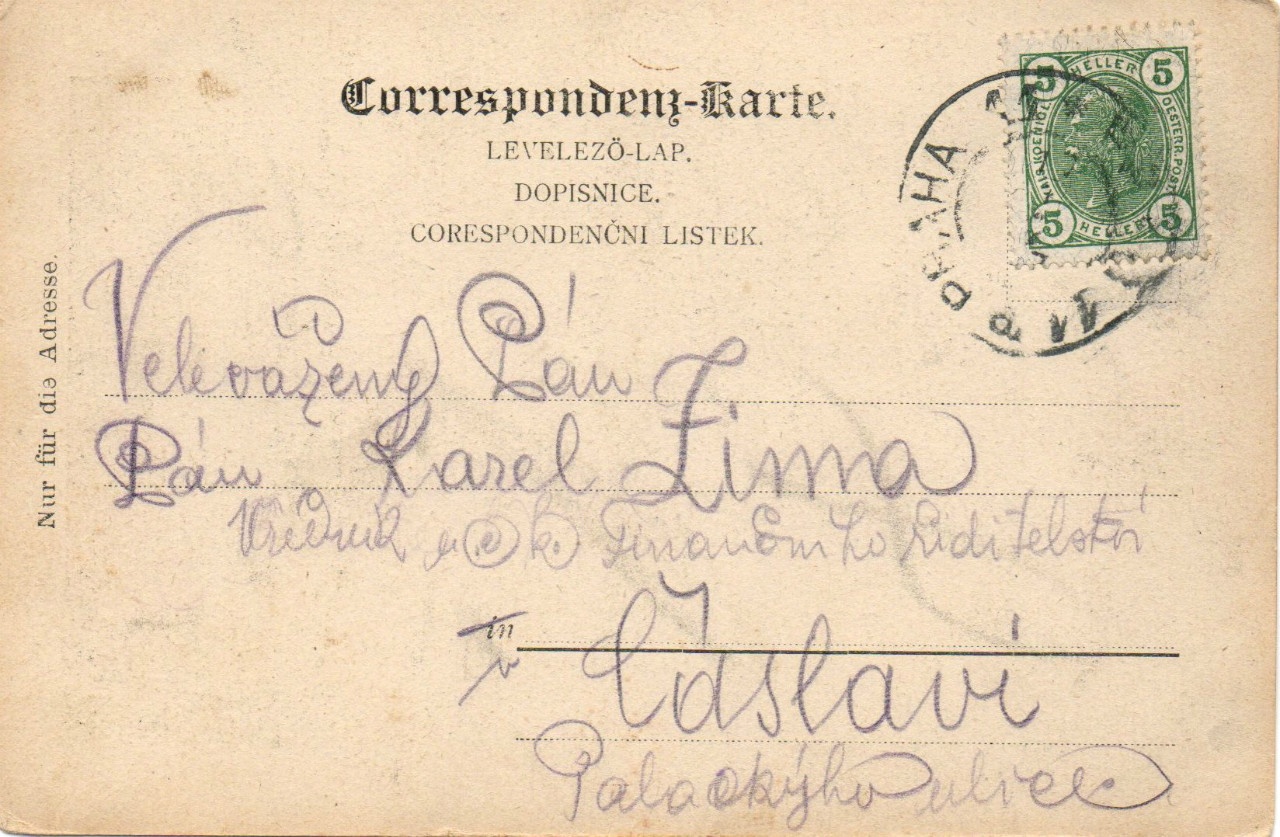 Correspondenz-Karte.
LEVELEZÖ-LAP.
DOPISNICE.
CORESPONDENČNI LISTEK.
Nur für die Adresse.
5 HELLER 5
KAIS. KOENIGL. OESTERR. POST
5 HELLER 5
PRAHA
Velevážený Pán
Pán Karel Zima
Úředník u c. k. Finančního ředitelství
in
v Čáslavi
Palackýho ulice